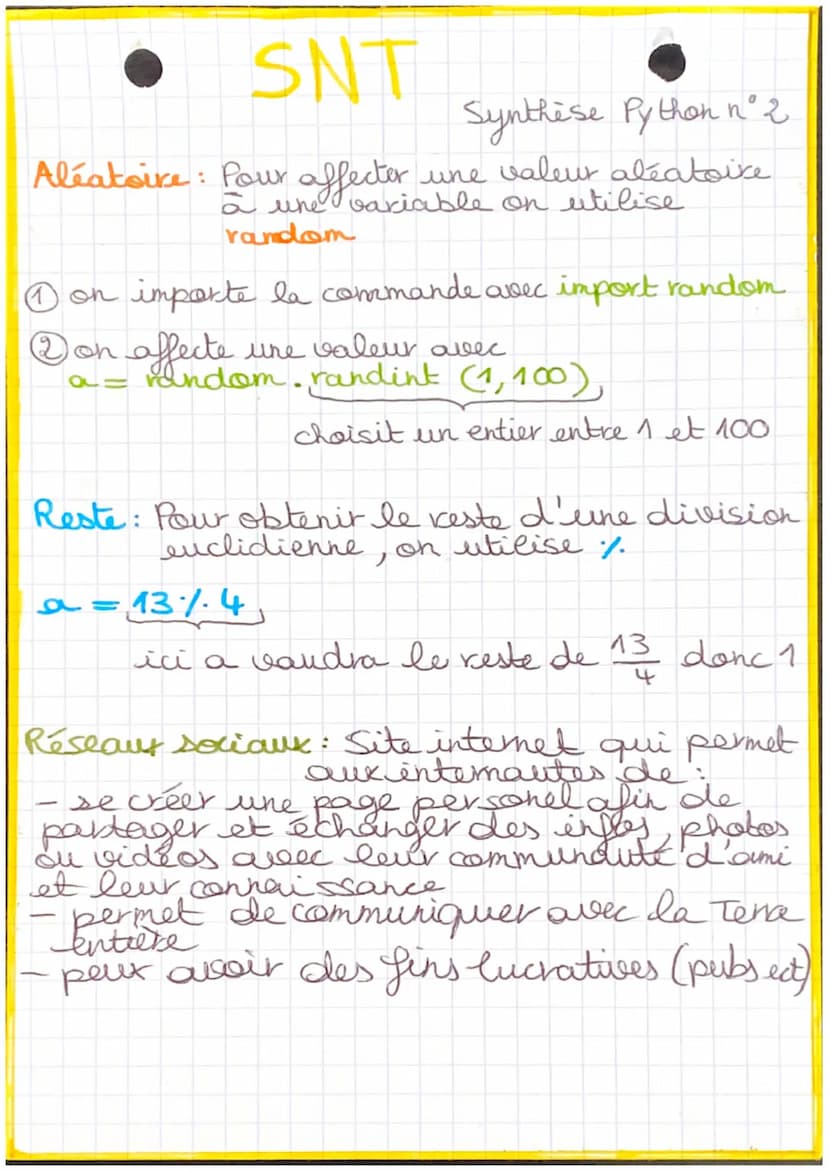 SNT
Synthèse Python n°2
Aléatoire : Pour affecter une valeur aléatoire
à une variable on utilise
random
① on importe la commande avec import random
② on affecte une valeur avec
a = random . randint (1, 100)
choisit un entier entre 1 et 100
Reste : Pour obtenir le reste d'une division
euclidienne, on utilise %
a = 13 % 4
ici a vaudra le reste de 13/4 donc 1
Réseaux sociaux : Site internet qui permet
aux internautes de :
- se créer une page personel afin de
partager et échanger des infos, photos
ou vidéos avec leur communauté d'ami
et leur connaissance
- permet de communiquer avec la Terre
entière
- peux avoir des fins lucratives (pubs ect)